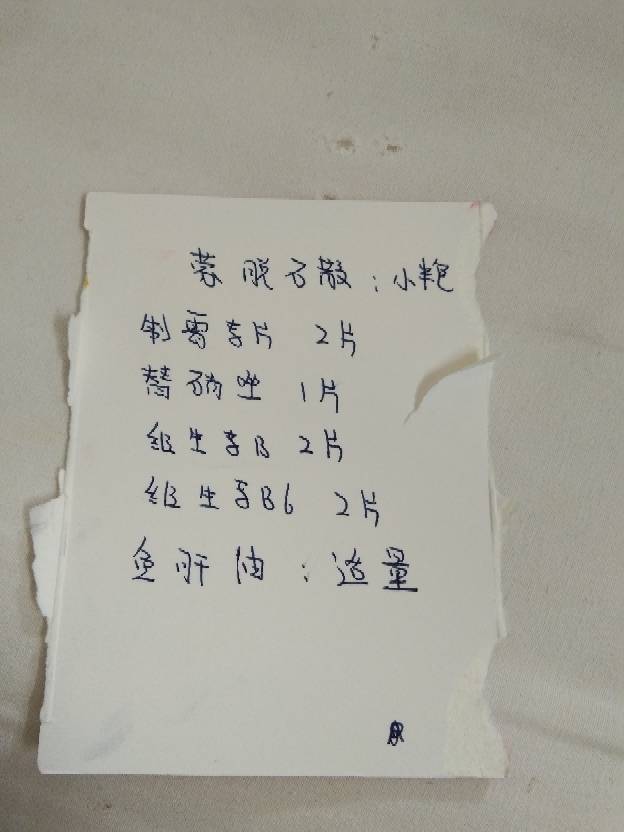 蒙脱石散：小半包
制霉素片 2片
替硝唑 1片
维生素B 2片
维生素B6 2片
鱼肝油：适量